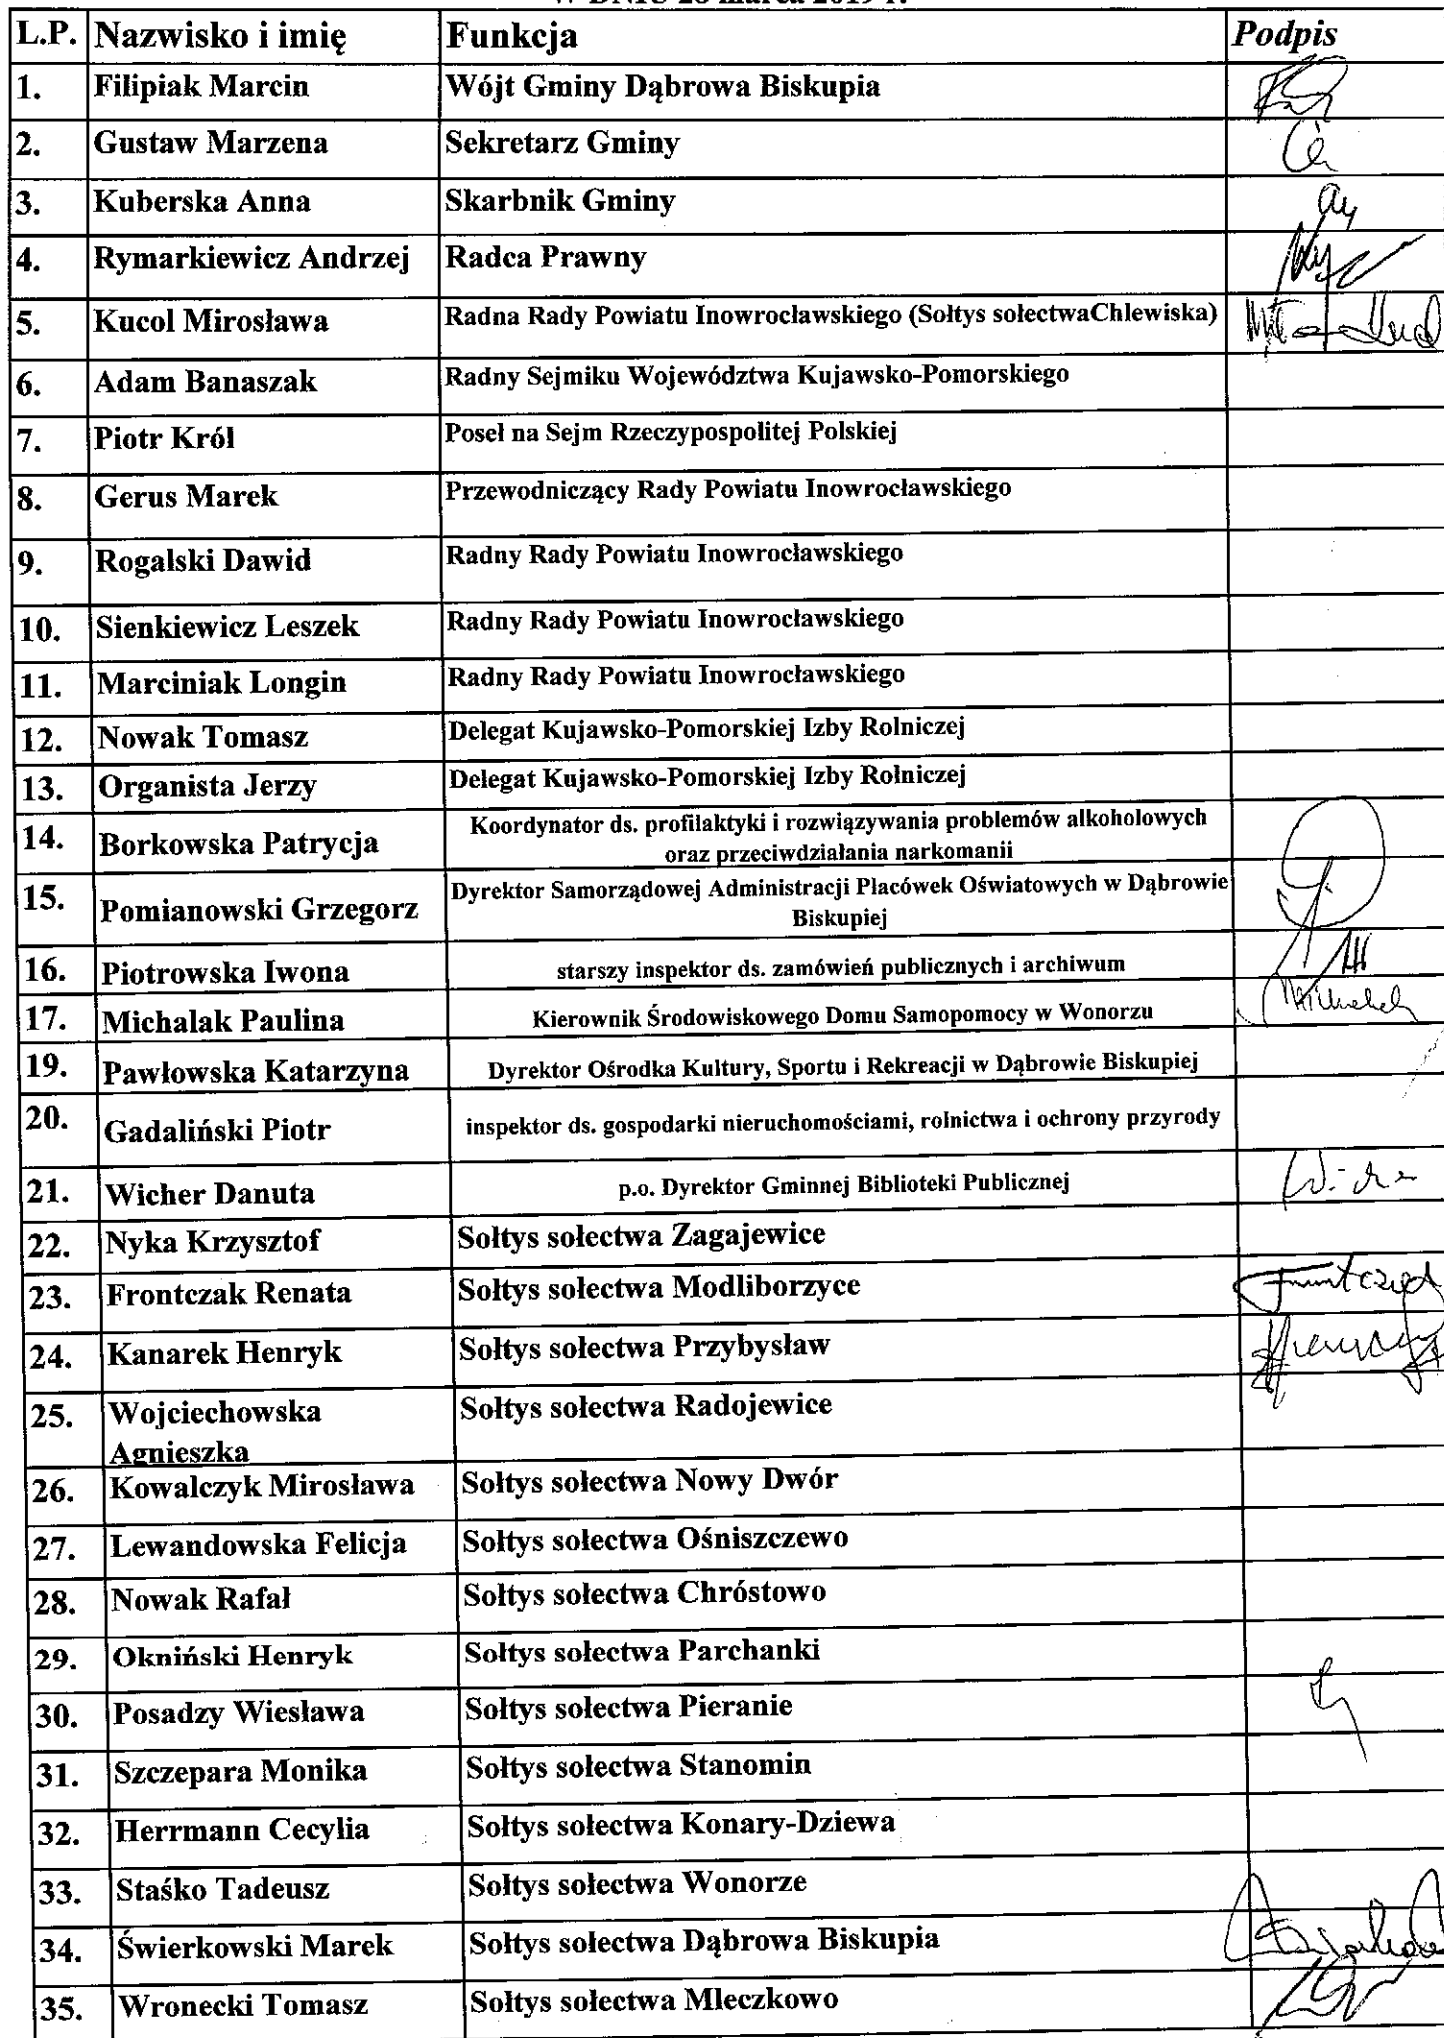 W DNIU 28 marca 2019 r.
L.P. Nazwisko i imię Funkcja Podpis
1. Filipiak Marcin Wójt Gminy Dąbrowa Biskupia
2. Gustaw Marzena Sekretarz Gminy
3. Kuberska Anna Skarbnik Gminy
4. Rymarkiewicz Andrzej Radca Prawny
5. Kucol Mirosława Radna Rady Powiatu Inowrocławskiego (Sołtys sołectwaChlewiska)
6. Adam Banaszak Radny Sejmiku Województwa Kujawsko-Pomorskiego
7. Piotr Król Poseł na Sejm Rzeczypospolitej Polskiej
8. Gerus Marek Przewodniczący Rady Powiatu Inowrocławskiego
9. Rogalski Dawid Radny Rady Powiatu Inowrocławskiego
10. Sienkiewicz Leszek Radny Rady Powiatu Inowrocławskiego
11. Marciniak Longin Radny Rady Powiatu Inowrocławskiego
12. Nowak Tomasz Delegat Kujawsko-Pomorskiej Izby Rolniczej
13. Organista Jerzy Delegat Kujawsko-Pomorskiej Izby Rolniczej
14. Borkowska Patrycja Koordynator ds. profilaktyki i rozwiązywania problemów alkoholowych
oraz przeciwdziałania narkomanii
15. Pomianowski Grzegorz Dyrektor Samorządowej Administracji Placówek Oświatowych w Dąbrowie
Biskupiej
16. Piotrowska Iwona starszy inspektor ds. zamówień publicznych i archiwum
17. Michalak Paulina Kierownik Środowiskowego Domu Samopomocy w Wonorzu
19. Pawłowska Katarzyna Dyrektor Ośrodka Kultury, Sportu i Rekreacji w Dąbrowie Biskupiej
20. Gadaliński Piotr inspektor ds. gospodarki nieruchomościami, rolnictwa i ochrony przyrody
21. Wicher Danuta p.o. Dyrektor Gminnej Biblioteki Publicznej
22. Nyka Krzysztof Sołtys sołectwa Zagajewice
23. Frontczak Renata Sołtys sołectwa Modliborzyce
24. Kanarek Henryk Sołtys sołectwa Przybysław
25. Wojciechowska Sołtys sołectwa Radojewice
Agnieszka
26. Kowalczyk Mirosława Sołtys sołectwa Nowy Dwór
27. Lewandowska Felicja Sołtys sołectwa Ośniszczewo
28. Nowak Rafał Sołtys sołectwa Chróstowo
29. Okniński Henryk Sołtys sołectwa Parchanki
30. Posadzy Wiesława Sołtys sołectwa Pieranie
31. Szczepara Monika Sołtys sołectwa Stanomin
32. Herrmann Cecylia Sołtys sołectwa Konary-Dziewa
33. Staśko Tadeusz Sołtys sołectwa Wonorze
34. Świerkowski Marek Sołtys sołectwa Dąbrowa Biskupia
35. Wronecki Tomasz Sołtys sołectwa Mleczkowo